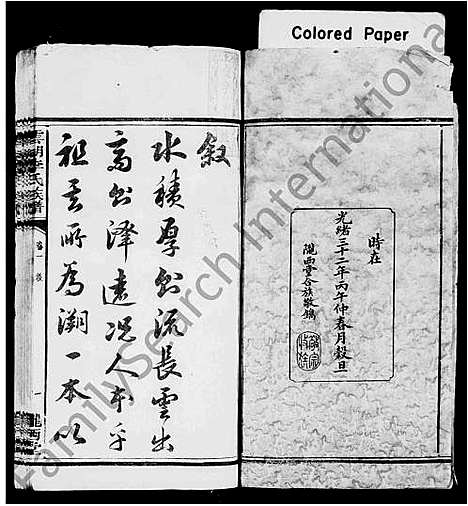 Colored Paper
時在
光緒三十二年丙午仲春月穀旦
隴西堂合族敬鐫
敘
水積厚則流長雲出
高則澤遠況人本乎
祖其所為溯一本以
氏族譜
卷一 敘
一
隴西堂
FamilySearch International